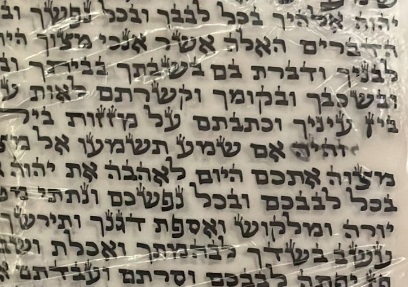 יהוה אלהיך בכל לבבך ובכל נפשך וב
הדברים האלה אשר אנכי מצוך הי
לבניך ודברת בם בשבתך בביתך וב
ובשכבך ובקומך וקשרתם לאות ע
בין עיניך וכתבתם על מזזות בי
והיה אם שמע תשמעו אל מצ
מצוה אתכם היום לאהבה את יהוה א
בכל לבבכם ובכל נפשכם ונתתי מ
יורה ומלקוש ואספת דגנך ותירש
עשב בשדך לבהמתך ואכלת ושב
פן יפתה לבבכם וסרתם ועבדתם א